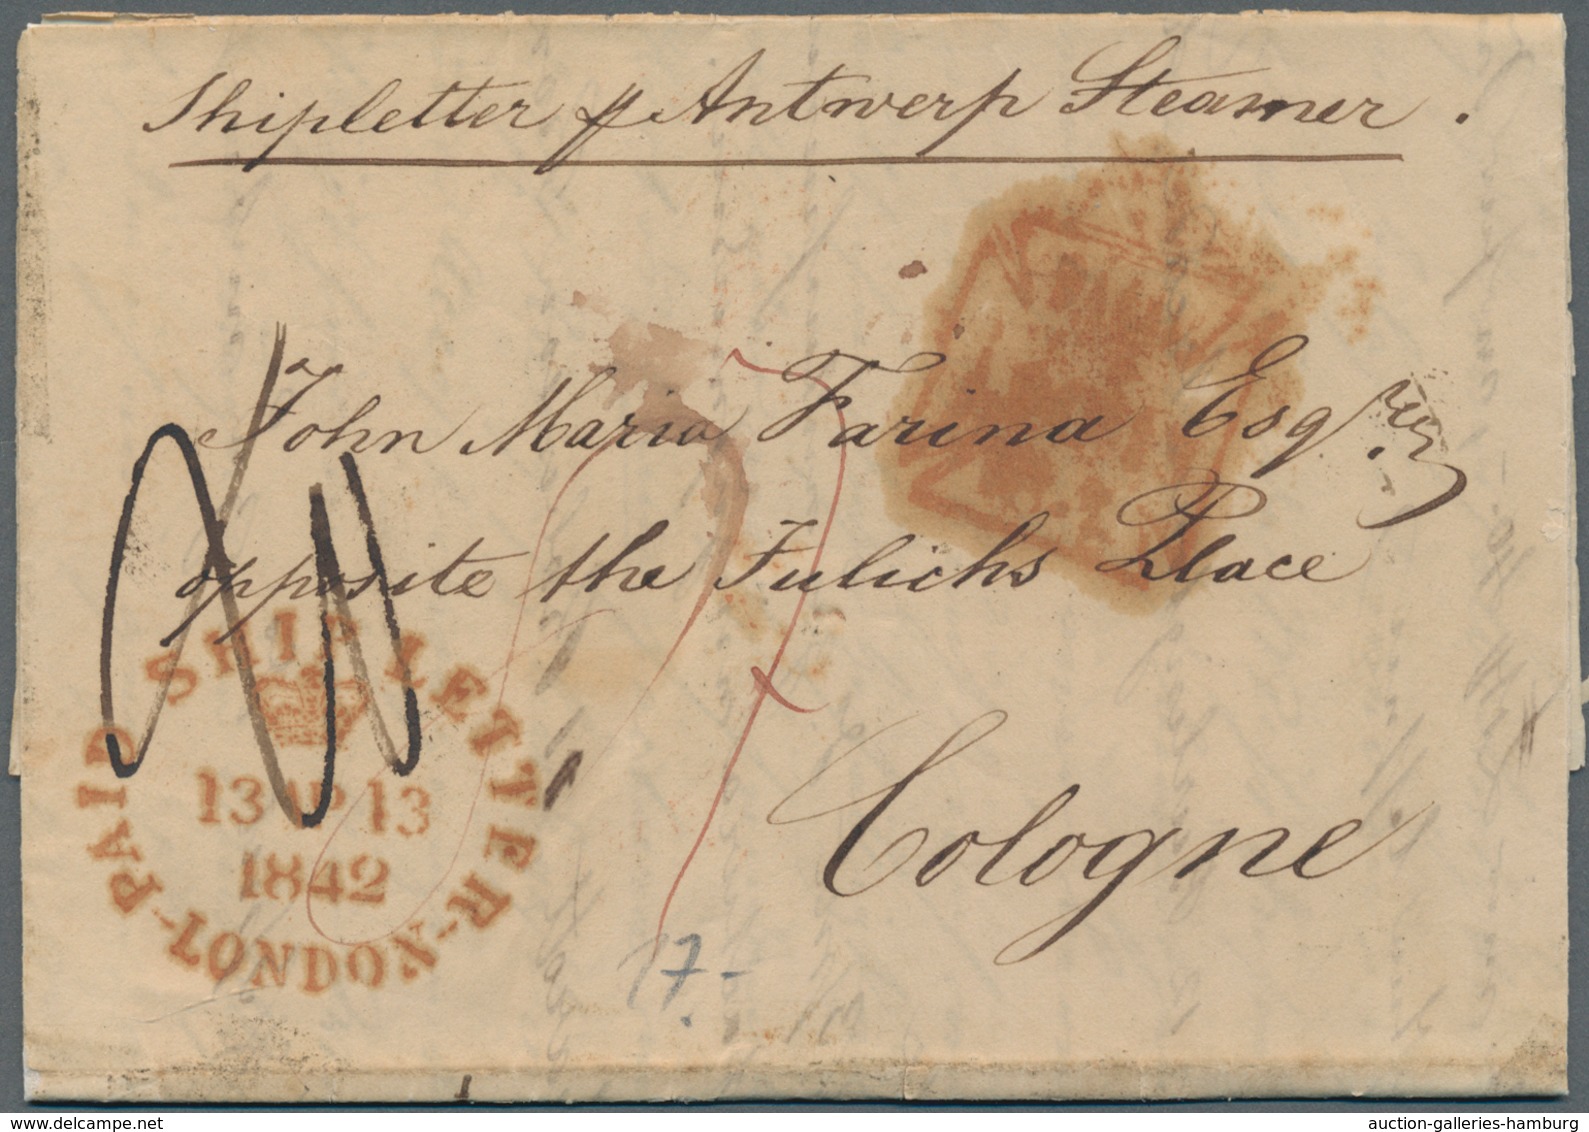 Shipletter p Antwerp Steamer.
John Maria Farina Esqre
opposite the Julichs Place
Cologne
PAID SHIP LETTER
13 AP 13
1842
-LONDON-
17.-
auction-galleries-hamburg
www.delcampe.net